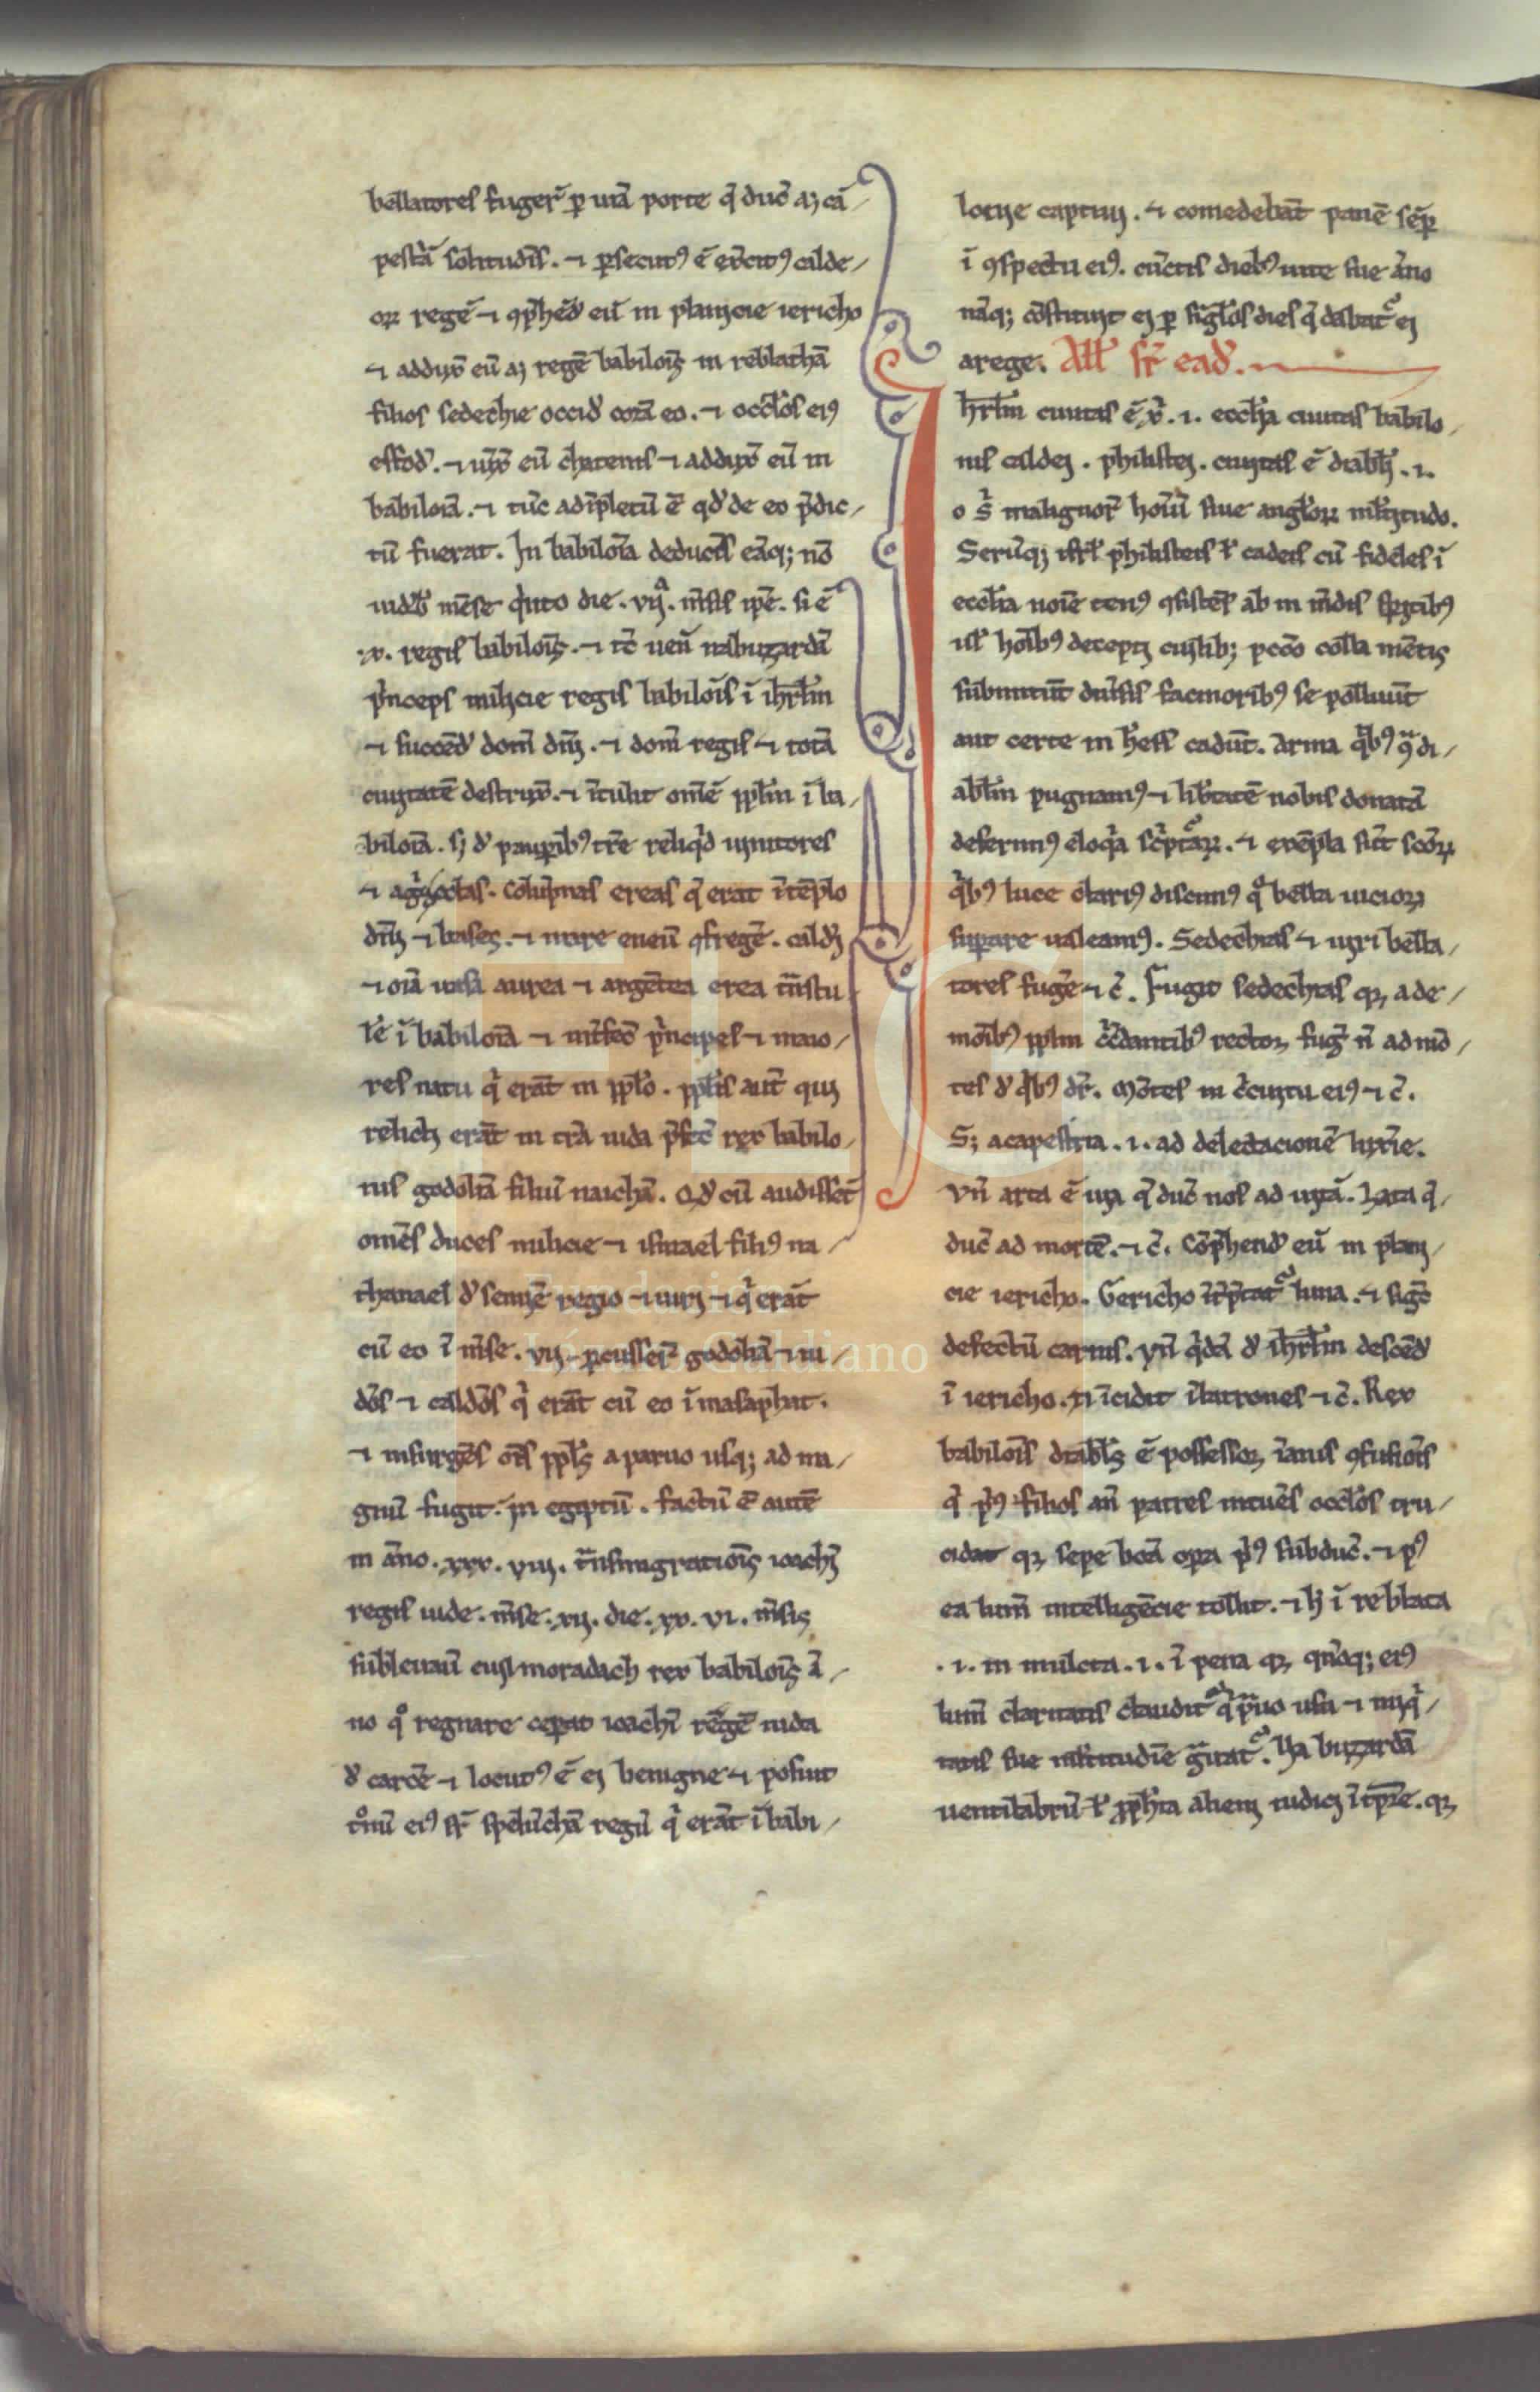 bellatores fuger̄ ꝑ uiā porte q̄ duc̄ aꝫ cā
pestͣ̄ solitudīs. ⁊ ꝑsecutꝰ ē exc̄itꝰ calde
oꝝ regē ⁊ ꝯp̄hēd̄ eū in planicie iericho
⁊ addux̄ eū aꝫ regē babiloīs in reblathā
filios sedechie occid̄ corā eo. ⁊ occl̄os eiꝰ
effod̄. ⁊ uīx̄ eū chatenis ⁊ addux̄ eū in
babiloīā. ⁊ tūc adīpletū ē qd̄ de eo p̄dic
tū fuerat. In babiloīa deduceris eāqꝫ nō
uideb̄ mēse qͥnto die. vij. mēsis ip̄e. h̄ ē
x. regis babiloīs. ⁊ tc̄ uen̄ nabuzardā
pͥnceps milicie regis babiloīs ī ihrl̄m
⁊ succēd̄ domū dn̄i. ⁊ domū regis ⁊ totā
ciuitatē destrux̄. ⁊ īt̄ulit om̄ē pp̄lm ī ba
biloīā. sꝫ d̄ pauꝑibꝰ tr̄e reliqͥd uinitores
⁊ agͥcolas. Colūpnas ereas q̄ erāt ī tēplo
dn̄i ⁊ bases. ⁊ mare eneū ꝯfregē. caldei
⁊ oīa uasa aurea ⁊ argētea erea t̄nstu
lē ī babiloīā ⁊ int̄fec̄ pͥncipes ⁊ maio
res natu qͥ erāt in pp̄lo. pp̄lis aut̄ qui
relicti erāt in trā iuda p̄fec̄ rex babilo
nis godoliā filiū naichā. Qd̄ cū audissēt
om̄s duces milicie ⁊ ismael filiꝰ na
thanael d̄ semine regio ⁊ uiri ⁊ qͥ erāt
cū eo ī mēse. vij. ꝑcusser̄t godoliā ⁊ iu
deōs ⁊ caldeōs qͥ erāt cū eo ī masaphat.
⁊ insurgēs oīs pp̄ls a paruo usqꝫ ad ma
gnū fugit. in egiptū. factū ē autē
in āno. xxx. viii. t̄nsmigratiōis ioachī
regis iude. mēse. xij. die. xx. vi. mēsis
subleuauit euilmoradach rex babiloīs ā
no qͦ regnare ceꝑat ioachī regē iuda
d̄ carcē ⁊ locutꝰ ē ei benigne ⁊ posuit
tͦnū eiꝰ sr̄ spelūchā regū qͥ erāt ī babi
locije captiui. ⁊ comedebāt panē sēꝑ
ī ꝯspectu eiꝰ. cūctis diebꝰ uite sue āno
nāqꝫ cōstituit ei ꝑ sīgl̄os dies q̄ dabat᷑ ei
a rege. All̄ sr̄ ead̄.
Ihrl̄m ciuitas ē xͥ. i. eccl̄ia ciuitas babilo
nis caldei. philistei. ciuitas ē diabl̄i. i.
malignoꝝ hoīum siue angl̄oꝝ ml̄titudo.
Seruīqꝫ isrl̄ philisteis ł cadeis cū fideles ī
eccl̄ia noīe tenꝰ ꝯsistēs ab inmūdis spiritibꝰ
ul̄ hoībꝰ decepti cuilibꝫ pcc̄o colla mētis
submittūt diuersis facinoribꝰ se polluūt
aut certe in heres̄ cadūt. Arma qͥbꝰ ꝯͣ di
abl̄m pugnamꝰ ⁊ lib̄tatē nobis donatā
deferimꝰ eloqͥa scͥptar̄. ⁊ exēpla sūt scōꝝ
qͥbꝰ luce clariꝰ discimꝰ qͦ bella uicioꝝ
suꝑare ualeamꝰ. Sedechias ⁊ uiri bella
tores fugēr ⁊ c̄. Fugit sedechias qꝫ a de
monibꝰ pplm c̄c̄dantibꝰ rector fug̅ n̄ ad mō
tes d̄ qͥbꝰ dr̄. Mōtes in cͥcuitu eiꝰ ⁊ c̄.
Sꝫ a capestria. i. ad delectacionē luxͥie.
Vn̄ arta ē uia q̄ duc̄ nos ad uitā. Lata q̄
duc̄ ad mortē. ⁊ c̄. Cōp̄hend̄ eū in plani
cie iericho. Gericho īt̄p̄tat᷑ luna. ⁊ sigͣt
defectū carnis. vn̄ qͥdā d̄ ihrl̄m descēd̄
ī iericho. ⁊ īcidit ī latrones ⁊ c̄. Rex
babiloīs diabl̄s ē possessor īanis ꝯfusiōis
qͥ pͥꝰ filios an̄ patres intuēs occl̄os tru
cidat qꝫ sepe bōa oꝑa pͥꝰ subduc̄. ⁊ pꝰ
ea lum̄ intelligēcie tollit. ⁊ h̄ ī reblata
.i. in multa. i. ī pena qꝫ qn̄qꝫ eiꝰ
lum̄ claritatis claudit᷑ qͥ pͣuo usu ⁊ iniqͥ
tatis sue ml̄titudīe gͣuat᷑. Na buzardā
uentilabrū ł pp̄hīa alieni iudicij īt̄p̄ꝫe. qꝫ